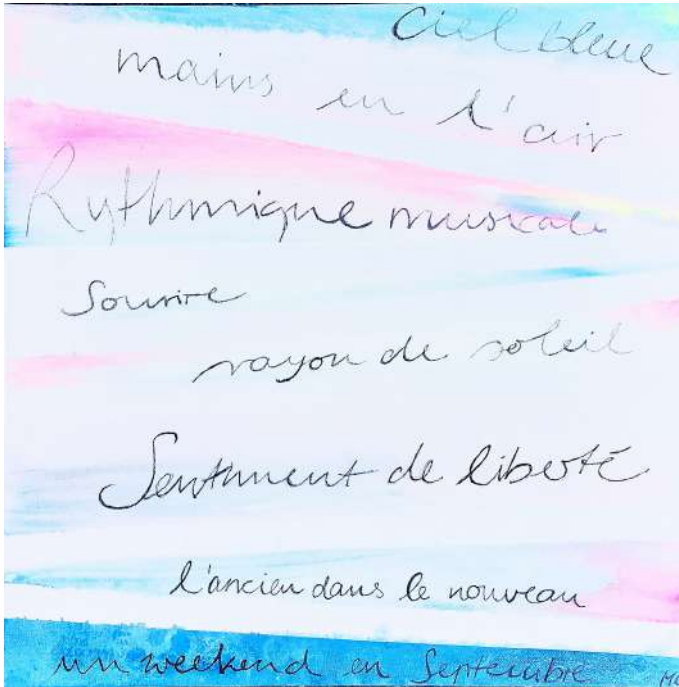 Ciel bleue
mains en l'air
Rythmique musicale
Sourire
rayon de soleil
Sentiment de liberté
l'ancien dans le nouveau
un weekend en Septembre